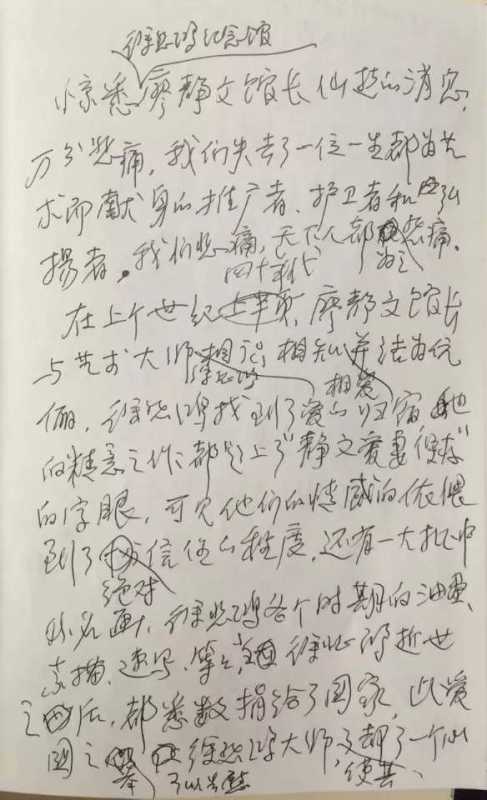 徐悲鸿纪念馆
惊悉廖静文馆长仙逝的消息,
万分悲痛,我们失去了一位一生都为艺
术而献身的推广者、护卫者和弘
揚者。我们悲痛,天下人都为之悲痛。
四十年代
在上个世纪上半页,廖静文馆长
与艺术大师徐悲鸿相识,相知相爱并结为伉
俪,徐悲鸿找到了爱的归宿,她
的精意之作都题上了"静文爱妻保存"
的字眼,可见他们的情感的依偎
到了绝对信任的程度,还有一大批中
外名画,徐悲鸿各个时期的油画、
素描、速写、等等,徐悲鸿逝世
之后,都悉数捐给了国家,此爱
国之举徐悲鸿大师,又却了一个心